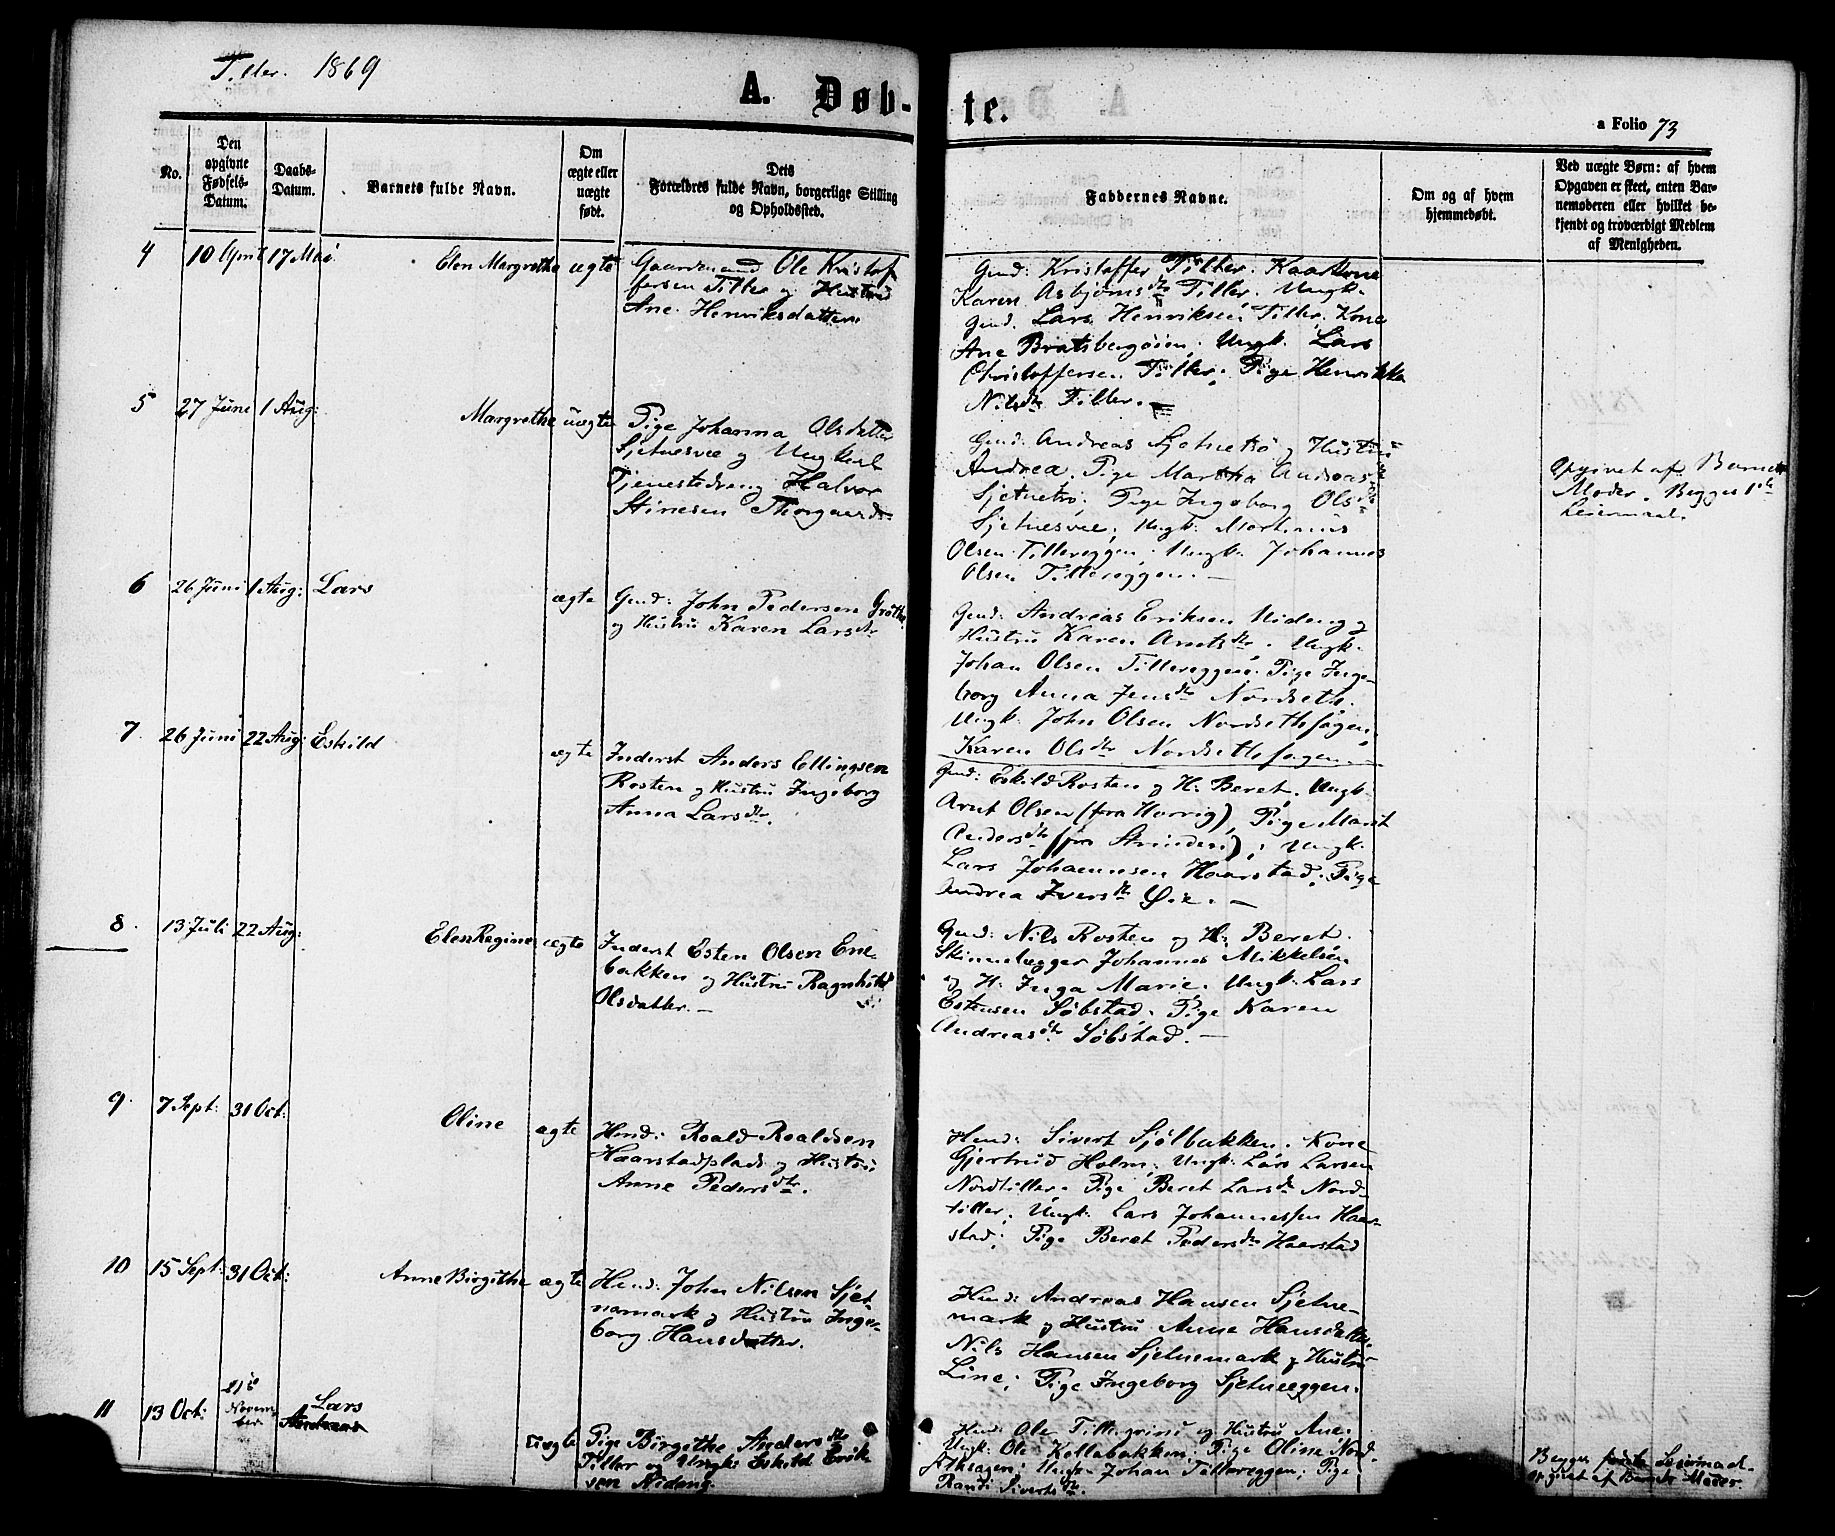 Tiller. 1869
A. Døb-
te.
a Folio 73
No.
Den
opgivne
Fødsels-
Datum.
Daabs-
Datum.
Barnets fulde Navn.
Om
ægte eller
uægte
født.
Dets
Forældres fulde Navn, borgerlige Stilling
og Opholdssted.
Faddernes Navne.
Om og af hvem
hjemmedøbt.
Ved uægte Børn: af hvem
Opgaven er skeet, enten Bar-
nemoderen eller hvilket be-
kjendt og troværdigt Medlem
af Menigheden.
4 10 April 17 Mai Elen Margrethe ægte
Gaardmand Ole Kristof
fersen Tiller og Hustru
Ane Henriksdatter.
Gmd: Kristoffer Tiller. Kaarkone
Karen Asbjørnsdtr Tiller. Ungk.
Gmd. Lars Henriksen Tiller, Kone
Ane Bratsbergøien. Ungk. Lars
Christoffersen Tiller. Pige Henrikka
Nilsdtr Tiller.
5 27 Juni 1 Aug: Margrethe uægte
Pige Johanna Olsdatter
Sjetnesvee og Ungkarl
Tjenestedreng Halvor
Stinesen Thorgaard
Gmd: Andreas Sjetnetrø og Hustru
Andrea. Pige Martha Andreasdtr
Sjetnetrø. Pige Ingeborg Olsdtr
Sjetnesvee, Ungk. Martinus
Olsen Tillereggen. Ungk. Johannes
Olsen Tillereggen.
Opgivet af Barnets
Moder. Begges 1ste
Leiermaal.
6 26 Juni 1 Aug: Lars ægte
Gmd: John Pedersen
og Hustru Karen Larsdtr
Gmd: Andreas Eriksen Nideng og
Hustru Karen Arntsdtr. Ungk.
Johan Olsen Tillereggen. Pige Inge-
borg Anna Jensdtr Nordseth.
Ungk. John Olsen Nordsethsagen,
Karen Olsdtr Nordsethsagen.
7. 26 Juni 22 Aug: Eskild ægte
Inderst Anders Ellingsen
Rosten og Hustru Ingeborg
Anna Larsdtr.
Gmd: Eskild Rosten og H. Beret. Ungk.
Arnt Olsen (fra Horrig), Pige Marit
Andersdtr (fra Strinden); Ungk.
Lars Johannesen Haarstad; Pige
Andrea Iversdtr Øie.
8. 13 Juli 22 Aug: Elen Regine ægte
Inderst Esten Olsen Ene-
bakken og Hustru Ragnhild
Olsdatter.
Gmd: Nils Rosten og H: Beret.
Johannes Mikkelsen
og H. Inga Marie. Ungk. Lars
Estensen Søbstad. Pige Karen
Andreasdtr Søbstad.
9. 7 Sept: 31 Oct: Oline ægte
Hmd: Roald Roaldsen
Haarstadplads og Hustru
Anne Pedersdtr.
Hmd: Sivert Sjølbakken. Kone
Gjertrud Holm. Ungk: Lars Larsen
Nordtiller. Pige Beret Larsdtr Nord-
tiller. Ungk: Lars Johannessen Haar-
stad. Pige Beret Pedersdtr Haarstad
10 15 Sept: 31 Oct: Anne Birgithe ægte
Hmd: John Nilsen Sjet-
namark og Hustru Inge-
borg Hansdatter.
Hmd: Andreas Hansen Sjetne-
mark og Hustru Anne Hansdatter,
Nils Hansen Sjetnemark og Hustru
Line; Pige Ingeborg Sjetneeggen.
11 13 Oct: Novem-
ber. Lars
Andreas uægte
Pige Birgithe Andersdtr
Tiller og Ungk: Eskild Erik-
sen Nideng.
Hmd: Ole Tillergrind og Hustru Ane.
Ungk: Ole Kollabakken; Pige Oline Nord-
Ungk: Johan Tillereggen; Pige
Randi Sivertsdtr
Begges første Leiermaal.
Opgivet af Barnets Moder.